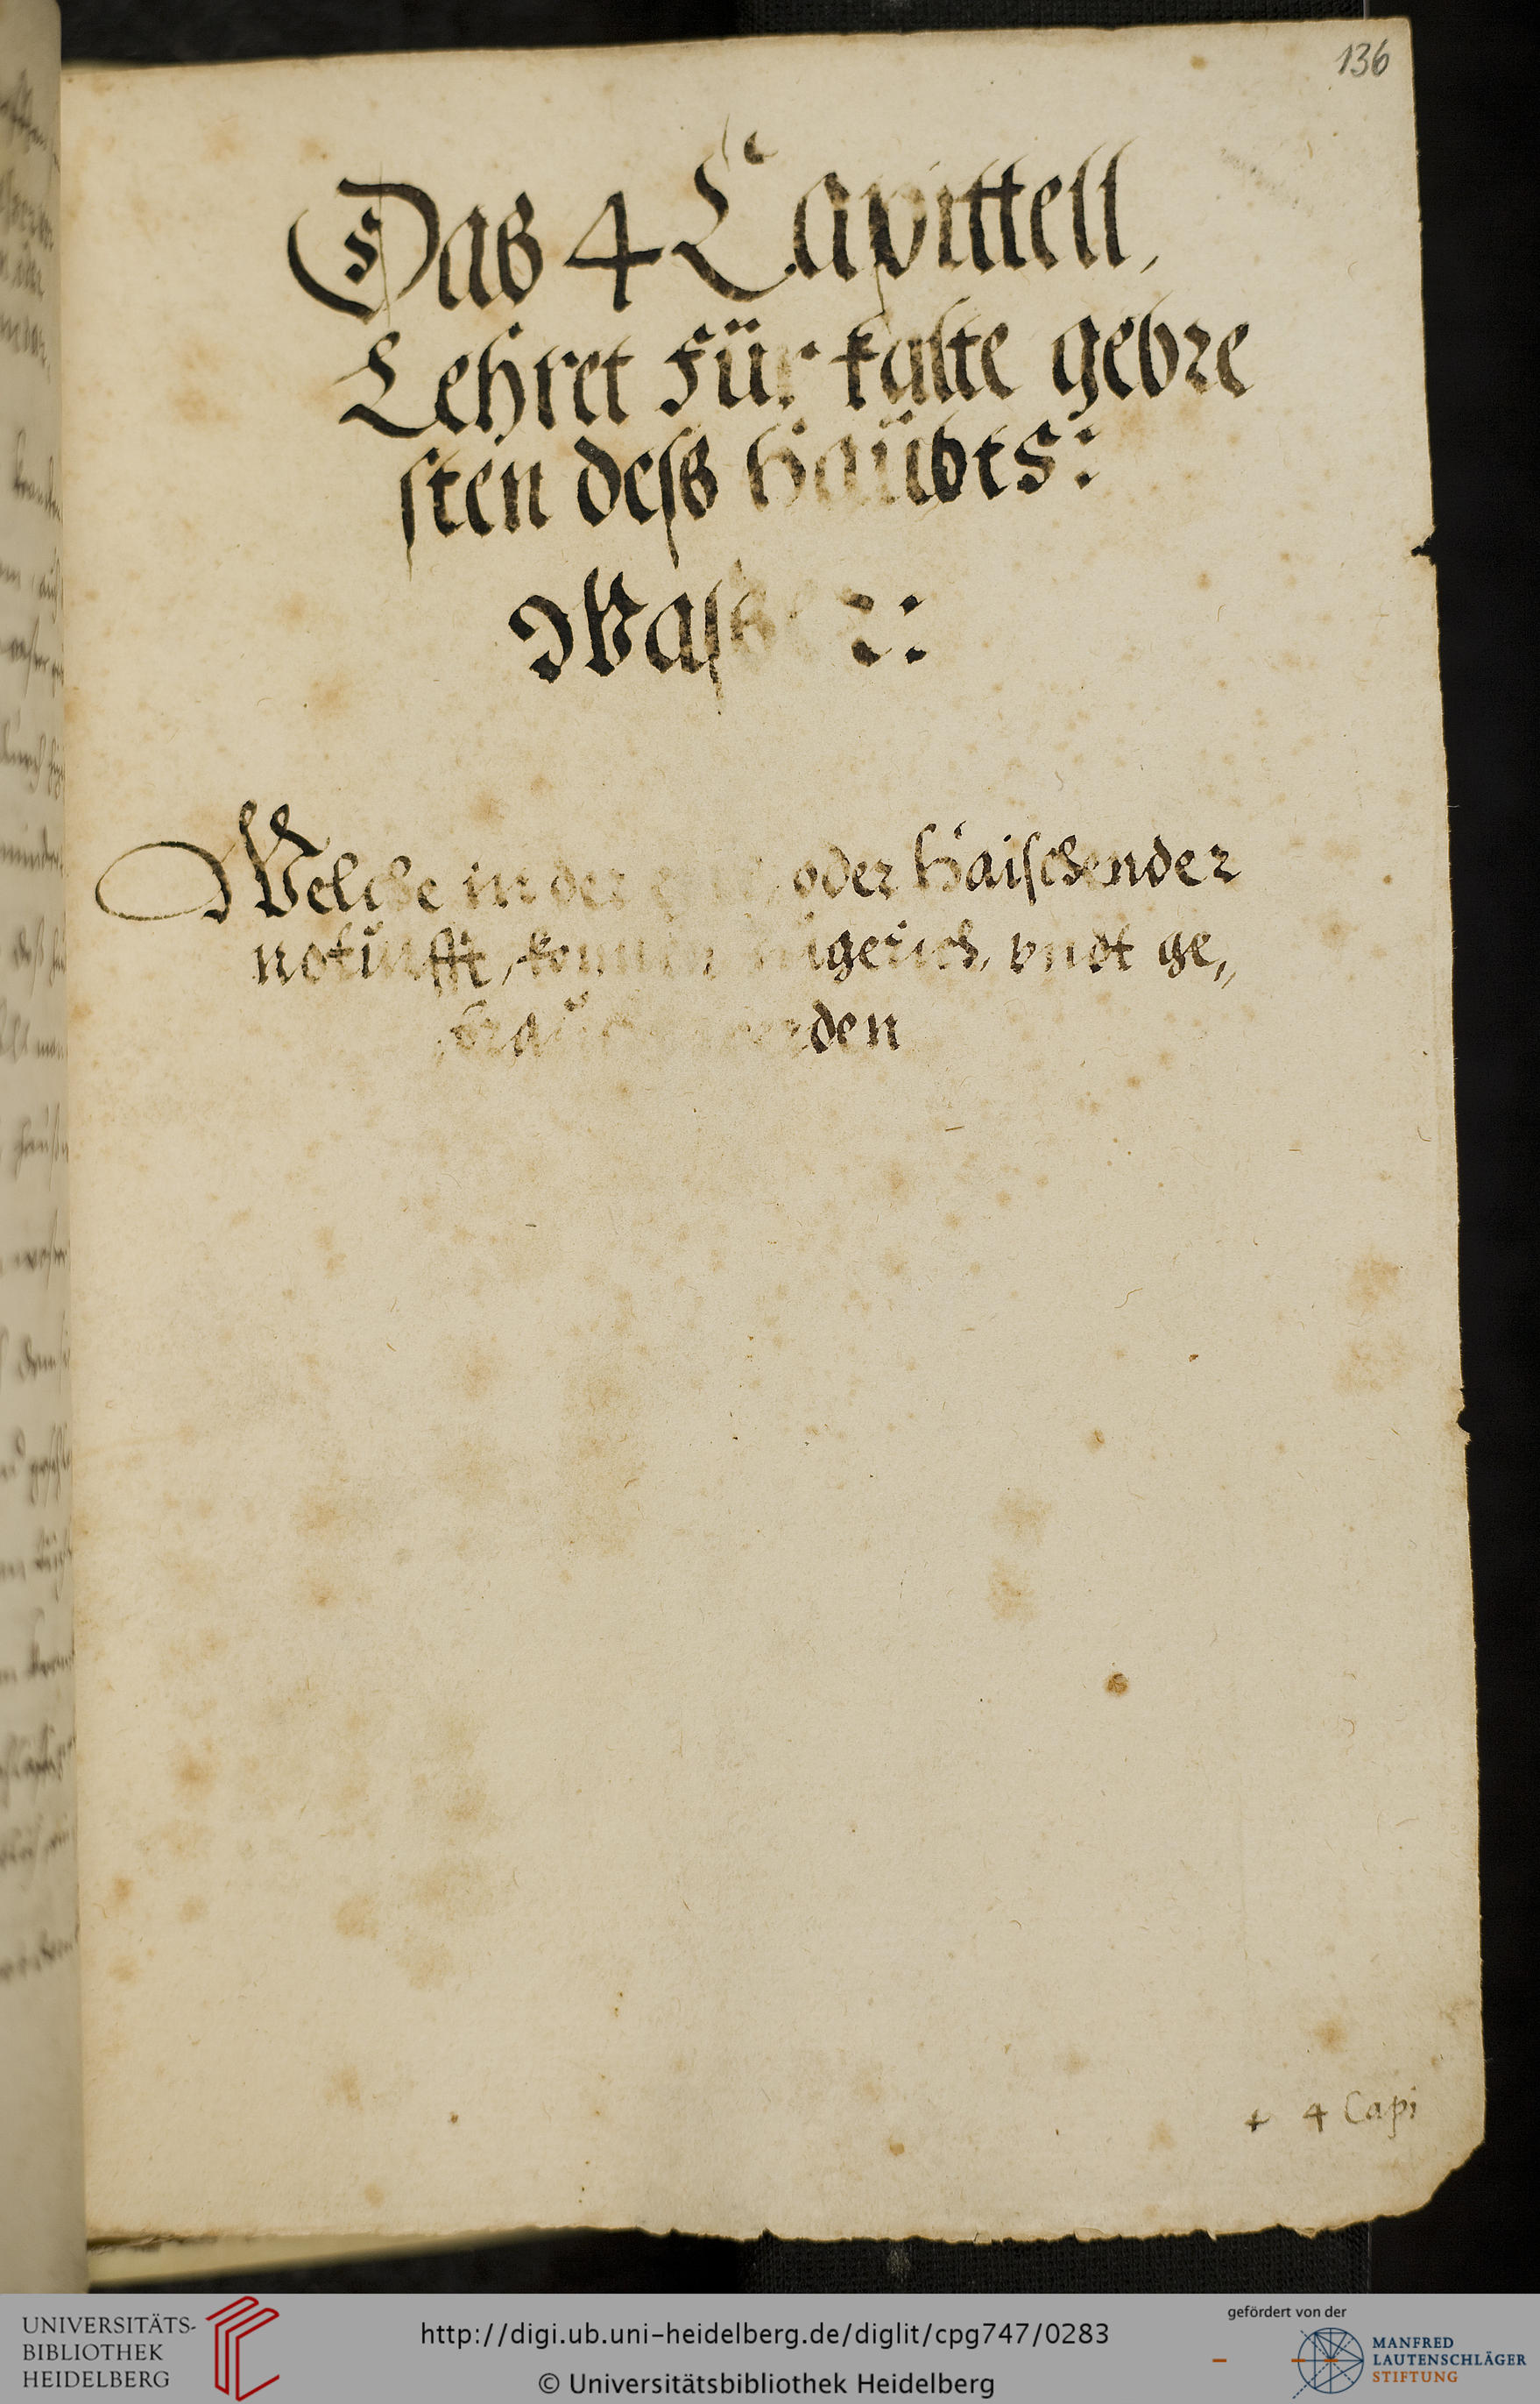 136
Das 4 Capittell,
Lehret für kalte gebre
sten deß Haübts:
Welche in der oder Haischender
notürfft, vndt ge„
den
4 Capi
UNIVERSITÄTS-
BIBLIOTHEK
HEIDELBERG
http://digi.ub.uni-heidelberg.de/diglit/cpg747/0283
© Universitätsbibliothek Heidelberg
gefördert von der
MANFRED
LAUTENSCHLÄGER
STIFTUNG